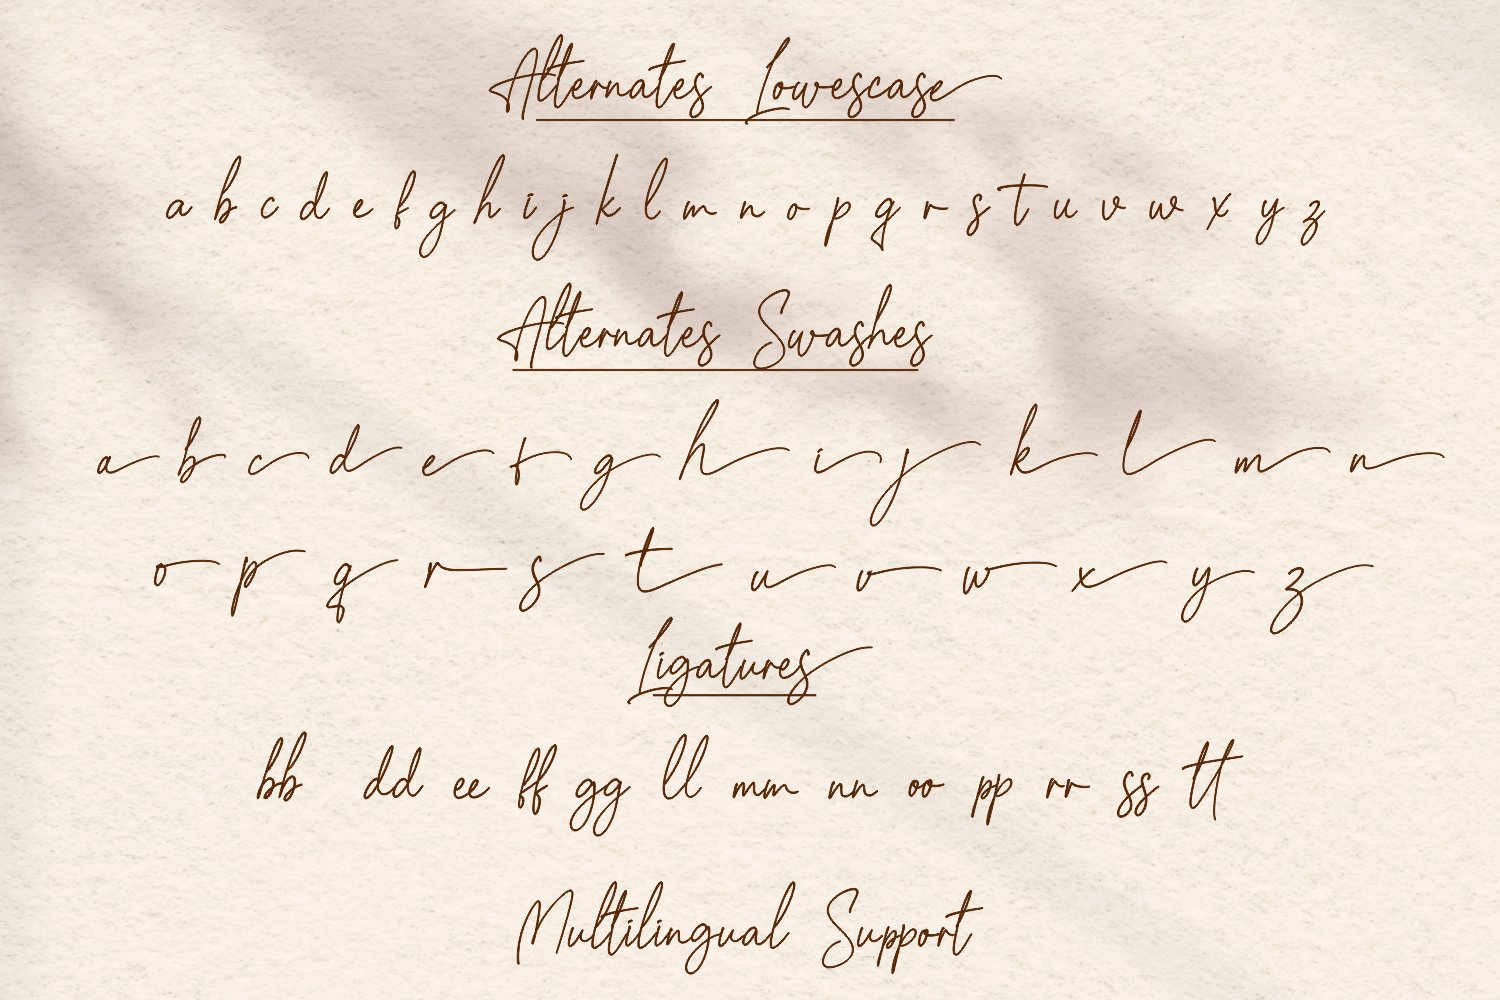 Alternates Lowescase
a b c d e f g h i j k l m n o p q r s t u v w x y z
Alternates Swashes
a b c d e f g h i j k l m n
o p q r s t u v w x y z
Ligatures
bb dd ee ff gg ll mm nn oo pp rr ss tt
Multilingual Support